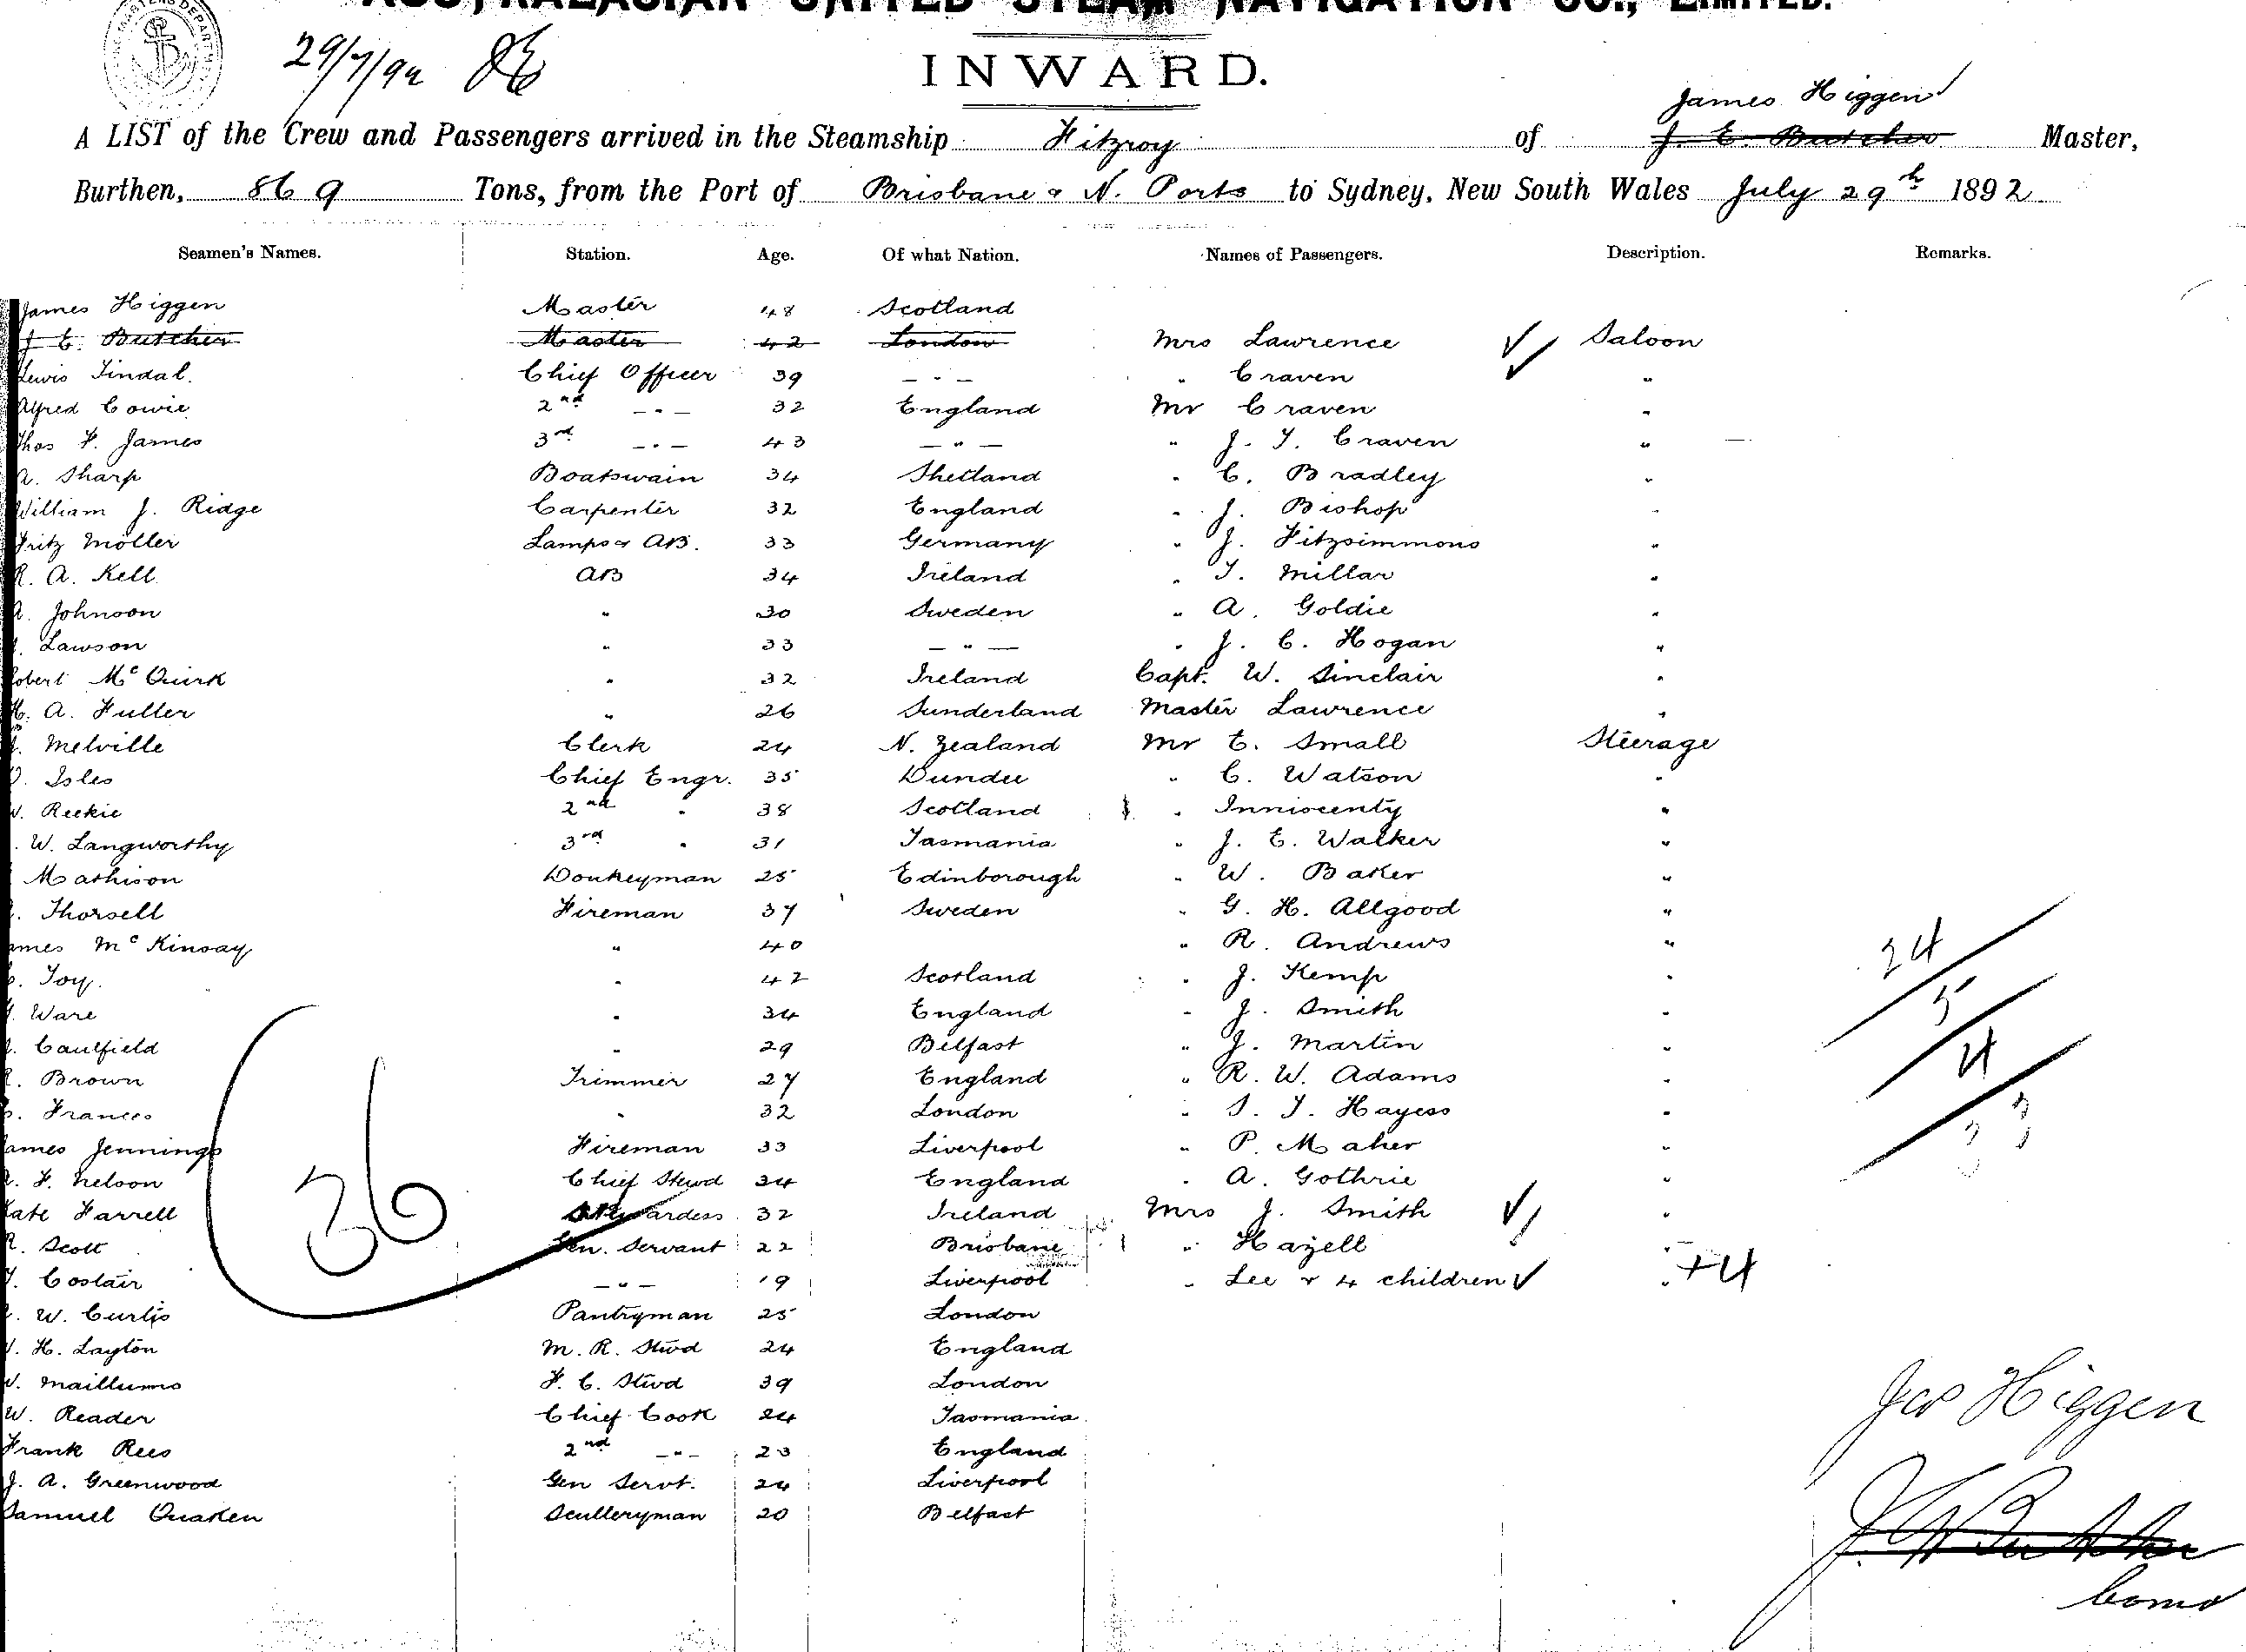 AUSTRALASIAN UNITED STEAM NAVIGATION CO., LIMITED.
29/7/92 86
INWARD.
James Higgen
A LIST of the Crew and Passengers arrived in the Steamship Fitzroy of J. E. Butcher Master,
Burthen, 869 Tons, from the Port of Brisbane & N. Ports to Sydney, New South Wales July 29th 1892
Seamen's Names. Station. Age. Of what Nation. Names of Passengers. Description. Remarks.
James Higgen Master 48 Scotland
J E. Butcher Master 42 London Mrs Lawrence Saloon
Lewis Tindal. Chief Officer 39 — " — " Craven "
Alfred Cowie 2nd — " — 32 England Mr Craven "
Thos F. James 3rd — " — 43 — " — " J. T. Craven "
R. Sharp Boatswain 34 Shetland " C. Bradley "
William J. Ridge Carpenter 32 England " J. Bishop "
Fritz Möller Lamps & AB. 33 Germany " J. Fitzsimmons "
R. A. Kell AB 34 Ireland " T. Millar "
Johnson " 30 Sweden " A. Goldie "
Lawson " 33 — " — " J. C. Hogan "
Robert McQuirk " 32 Ireland Capt. W. Sinclair "
H. A. Fuller " 26 Sunderland Master Lawrence "
Melville Clerk 24 N. Zealand Mr E. Small Steerage
Isles Chief Engr. 35 Dundee " C. Watson "
W. Reekie 2nd " 38 Scotland " Inniscenty "
W. Langworthy 3rd " 31 Tasmania " J. E. Walker "
Mathison Donkeyman 25 Edinborough " W. Baker "
Thorsell Fireman 37 Sweden " G. H. Allgood "
James McKinsay " 40 " R. Andrews "
Toy. " 42 Scotland " J. Kemp "
Ware " 34 England " J. Smith "
Caulfield " 29 Belfast " J. Martin "
Brown Trimmer 27 England " R. W. Adams "
Frances " 32 London " T. Hayess "
James Jennings Fireman 33 Liverpool " P. Maher "
F. Nelson Chief Stewd 34 England " A. Gothrie "
Kate Farrell Stewardess 32 Ireland Mrs J. Smith "
R. Scott Gen. Servant 22 Brisbane " Hazell "
Costair — " — 19 Liverpool " Lee & 4 children " +4
W. Curtis Pantryman 25 London
H. Layton M. R. Stwd 24 England
W. Maillums F. C. Stwd 39 London
W. Reader Chief Cook 24 Tasmania
Frank Rees 2nd — " — 23 England
J. A. Greenwood Gen Servt. 24 Liverpool
Samuel Quaken Sculleryman 20 Belfast
36
24
5
4
33
Jas Higgen
J E Butcher
Comd